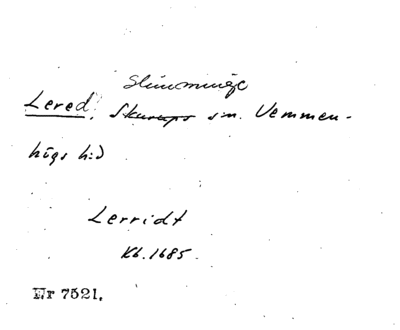 Slimminge
Lered. Skurups sn. Vemmen-
högs h:d
Lerridt
Kb. 1685.
Nr 7521.